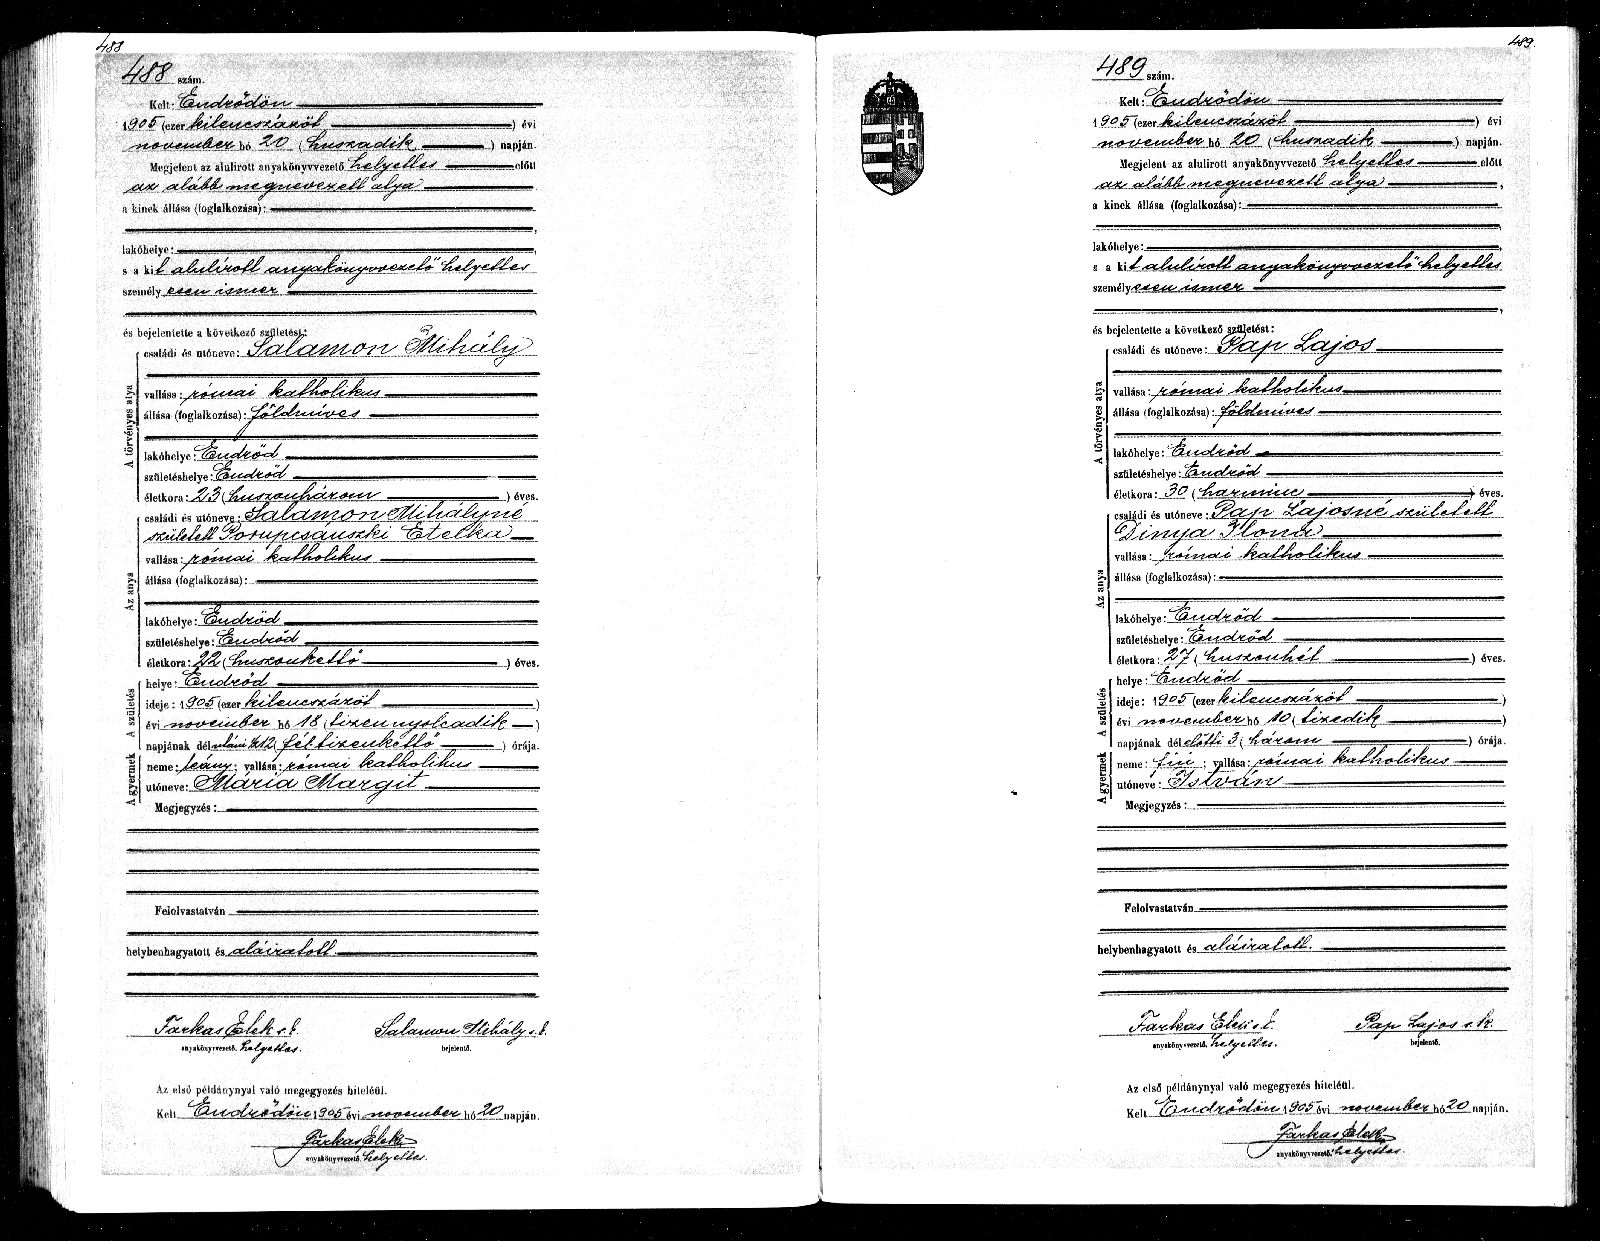 488
488 szám.
Kelt: Endrődön
1905 (ezer kilencszázöt ) évi
november hó 20 (huszadik ) napján.
Megjelent az alulirott anyakönyvvezető helyettes előtt
az alább megnevezett atya
a kinek állása (foglalkozása):
lakóhelye:
s a kit alulírott anyakönyvvezető helyettes
személyesen ismer
és bejelentette a következő születést:
A törvényes atya
családi és utóneve: Salamon Mihály
vallása: római katholikus
állása (foglalkozása): földmíves
lakóhelye: Endrőd
születéshelye: Endrőd
életkora: 23 (huszonhárom ) éves.
Az anya
családi és utóneve: Salamon Mihályné
született Etelka
vallása: római katholikus
állása (foglalkozása):
lakóhelye: Endrőd
születéshelye: Endrőd
életkora: 22 (huszonkettő ) éves.
A születés
helye: Endrőd
ideje: 1905 (ezer kilencszázöt )
évi november hó 18 (tizennyolcadik )
napjának délutáni 1/2 12 (féltizenkettő ) órája.
A gyermek
neme: leány; vallása: római katholikus
utóneve: Mária Margit
Megjegyzés:
Felolvastatván
helybenhagyatott és aláiratott.
Farkas Elek s. k. Salamon Mihály s. k.
anyakönyvvezető. helyettes. bejelentő.
Az első példánynyal való megegyezés hiteléül.
Kelt Endrődön 1905 évi november hó 20 napján.
Farkas Elek
anyakönyvvezető. helyettes.
489.
489 szám.
Kelt: Endrődön
1905 (ezer kilencszázöt ) évi
november hó 20 (huszadik ) napján.
Megjelent az alulirott anyakönyvvezető helyettes előtt
az alább megnevezett atya ,
a kinek állása (foglalkozása):
lakóhelye:
s a kit alulírott anyakönyvvezető helyettes
személyesen ismer
és bejelentette a következő születést:
A törvényes atya
családi és utóneve: Pap Lajos
vallása: római katholikus
állása (foglalkozása): földmíves
lakóhelye: Endrőd
születéshelye: Endrőd
életkora: 30 (harminc ) éves.
Az anya
családi és utóneve: Pap Lajosné született
Dinya Ilona
vallása: római katholikus
állása (foglalkozása):
lakóhelye: Endrőd
születéshelye: Endrőd
életkora: 27 (huszonhét ) éves.
A születés
helye: Endrőd
ideje: 1905 (ezer kilencszázöt )
évi november hó 10 (tizedik )
napjának délelőtti 3 (három ) órája.
A gyermek
neme: fiú ; vallása: római katholikus
utóneve: István
Megjegyzés:
Felolvastatván
helybenhagyatott és aláiratott.
Farkas Elek s. k. Pap Lajos s. k.
anyakönyvvezető. helyettes. bejelentő.
Az első példánynyal való megegyezés hiteléül.
Kelt Endrődön 1905 évi november hó 20 napján.
Farkas Elek
anyakönyvvezető. helyettes.